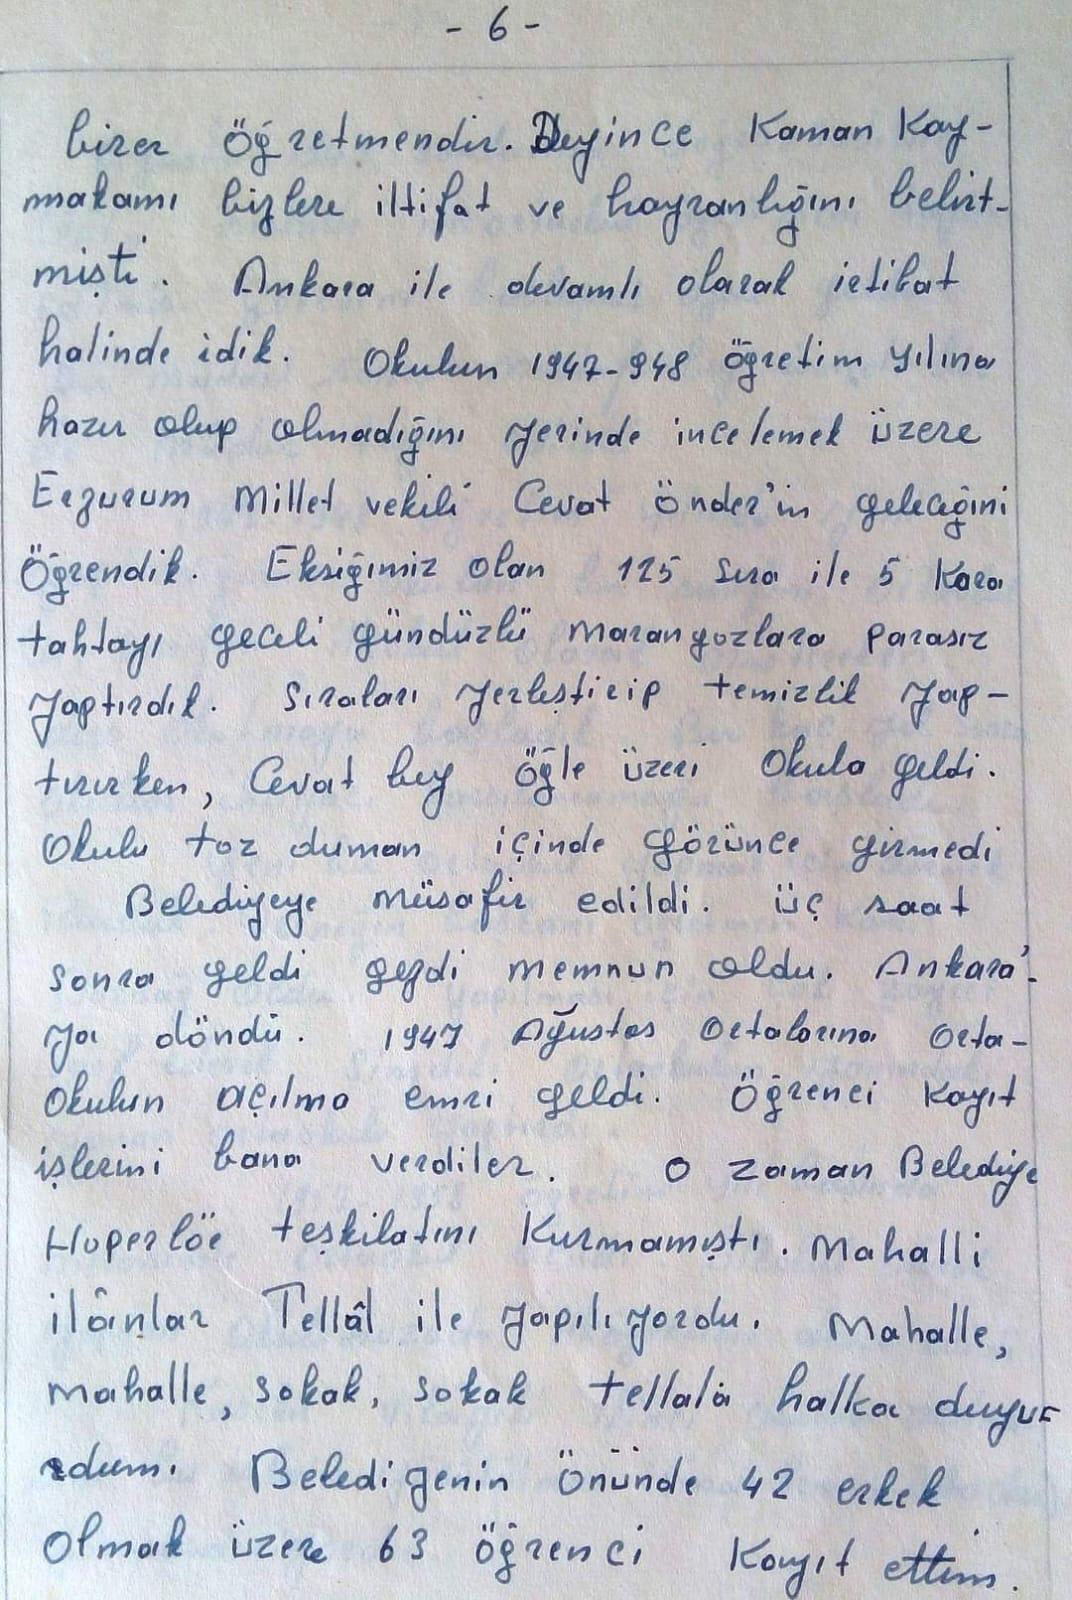 - 6 -
birer öğretmendir. Deyince Kaman Kay-
makamı bizlere iltifat ve hayranlığını belirt-
mişti. Ankara ile devamlı olarak irtibat
halinde idik. Okulun 1947-948 öğretim yılına
hazır olup olmadığını yerinde incelemek üzere
Erzurum Millet vekili Cevat önder'in geleceğini
Öğrendik. Eksiğimiz olan 125 sıra ile 5 Kara
tahtayı geceli gündüzlü marangozlara parasız
yaptırdık. Sıraları yerleştirip temizlik yap-
tırırken, Cevat bey öğle üzeri Okula geldi.
Okulu toz duman içinde görünce girmedi
Belediyeye müsafir edildi. üç saat
sonra geldi gezdi memnun oldu. Ankara'-
ya döndü. 1947 Ağustos Ortalarına Orta-
Okulun açılma emri geldi. Öğrenci Kayıt
işlerini bana verdiler. O zaman Belediye
Hoperlöe teşkilatını Kurmamıştı. Mahalli
ilânlar Tellâl ile yapılıyordu. Mahalle,
Mahalle, sokak, sokak tellala halka duyur
rdum. Belediyenin önünde 42 erkek
Olmak üzere 63 öğrenci Kayıt ettim.